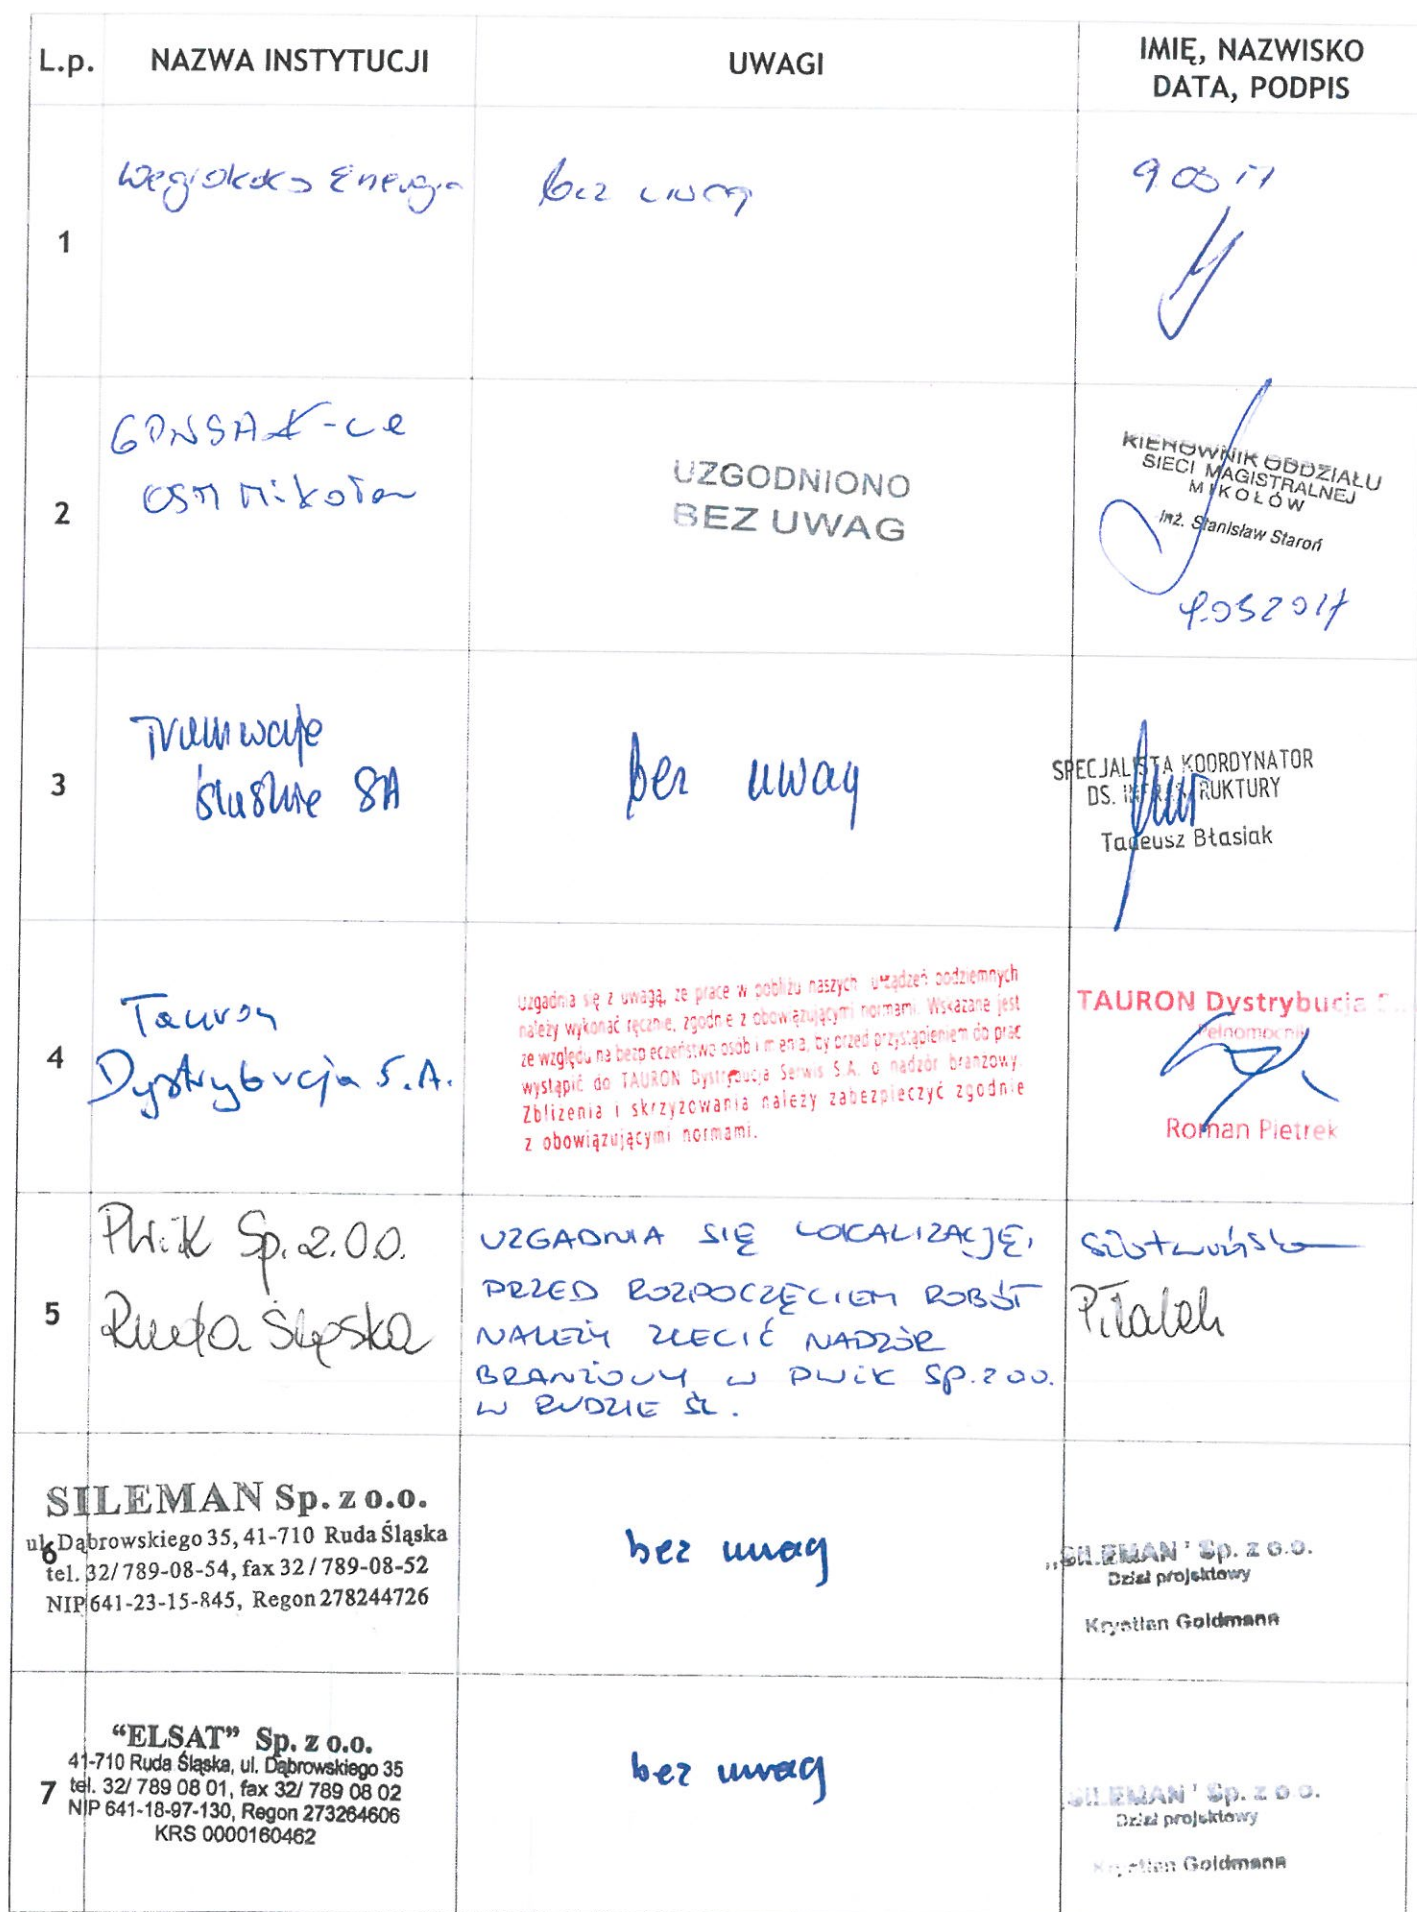 L.p.
NAZWA INSTYTUCJI
UWAGI
IMIĘ, NAZWISKO
DATA, PODPIS
1
Węglokoks Energia
bez uwag
9 03 17
2
GPW SA K-ce
OSM Mikołów
UZGODNIONO
BEZ UWAG
KIEROWNIK ODDZIAŁU
SIECI MAGISTRALNEJ
MIKOŁÓW
inż. Stanisław Staroń
9.03 2017
3
Tramwaje
Śląskie SA
bez uwag
SPECJALISTA KOORDYNATOR
DS. INFRASTRUKTURY
Tadeusz Błasiak
4
Tauron
Dystrybucja S.A.
Uzgadnia się z uwagą, że prace w pobliżu naszych urządzeń podziemnych
należy wykonać ręcznie, zgodnie z obowiązującymi normami. Wskazane jest
ze względu na bezpieczeństwo osób i mienia, by przed przystąpieniem do prac
wystąpić do TAURON Dystrybucja Serwis S.A. o nadzór branżowy.
Zbliżenia i skrzyżowania należy zabezpieczyć zgodnie
z obowiązującymi normami.
TAURON Dystrybucja S.
Pełnomocnik
Roman Pietrek
5
PWiK Sp. z.o.o.
Ruda Śląska
UZGADNIA SIĘ LOKALIZACJĘ,
PRZED ROZPOCZĘCIEM ROBÓT
NALEŻY ZLECIĆ NADZÓR
BRANŻOWY W PWiK SP. Z O.O.
W RUDZIE ŚL.
6
SILEMAN Sp. z o.o.
ul. Dąbrowskiego 35, 41-710 Ruda Śląska
tel. 32/ 789-08-54, fax 32 / 789-08-52
NIP 641-23-15-845, Regon 278244726
bez uwag
„SILEMAN" Sp. z o.o.
Dział projektowy
Krystian Goldmann
7
“ELSAT” Sp. z o.o.
41-710 Ruda Śląska, ul. Dąbrowskiego 35
tel. 32/ 789 08 01, fax 32/ 789 08 02
NIP 641-18-97-130, Regon 273264606
KRS 0000160462
bez uwag
SILEMAN" Sp. z o.o.
Dział projektowy
Krystian Goldmann